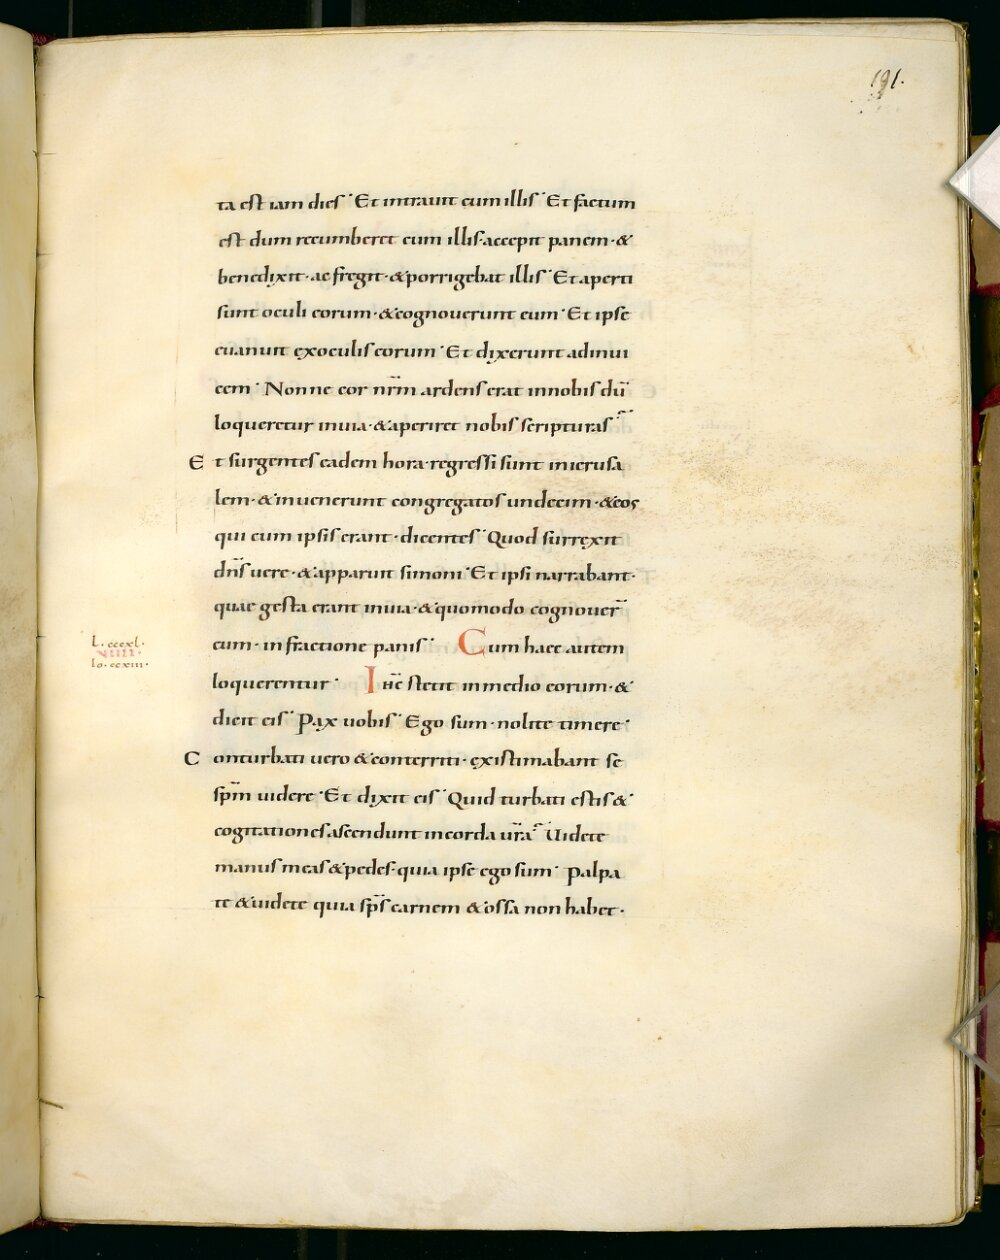 191.
ta est iam dies · Et intrauit cum illis · Et factum
est dum recumberet cum illis · accepit panem · &
benedixit · ac fregit · & porrigebat illis · Et aperti
sunt oculi eorum · & cognouerunt eum · Et ipse
euanuit ex oculis eorum · Et dixerunt adinui
cem · Nonne cor nr̄m ardens erat innobis dū
loqueretur inuia · & aperiret nobis scripturas
Et surgentes eadem hora · regressi sunt inierusa
lem · & inuenerunt congregatos undecim · & eos
qui cum ipsis erant · dicentes · Quod surrexit
dn̄s uere · & apparuit simoni · Et ipsi narrabant ·
quae gesta erant inuia · & quomodo cognouer̄
eum · in fractione panis · Cum haec autem
L · cccxl ·
VIIII ·
Io · ccxiii ·
loquerentur · Ihc̄ stetit inmedio eorum · &
dicit eis · Pax uobis · Ego sum · nolite timere ·
Conturbati uero & conterriti · existimabant se
sp̄m uidere · Et dixit eis · Quid turbati estis &
cogitationes ascendunt incorda ur̄a · Uidete
manus meas & pedes · quia ipse ego sum · Palpa
te & uidete quia sp̄s carnem & ossa non habet ·